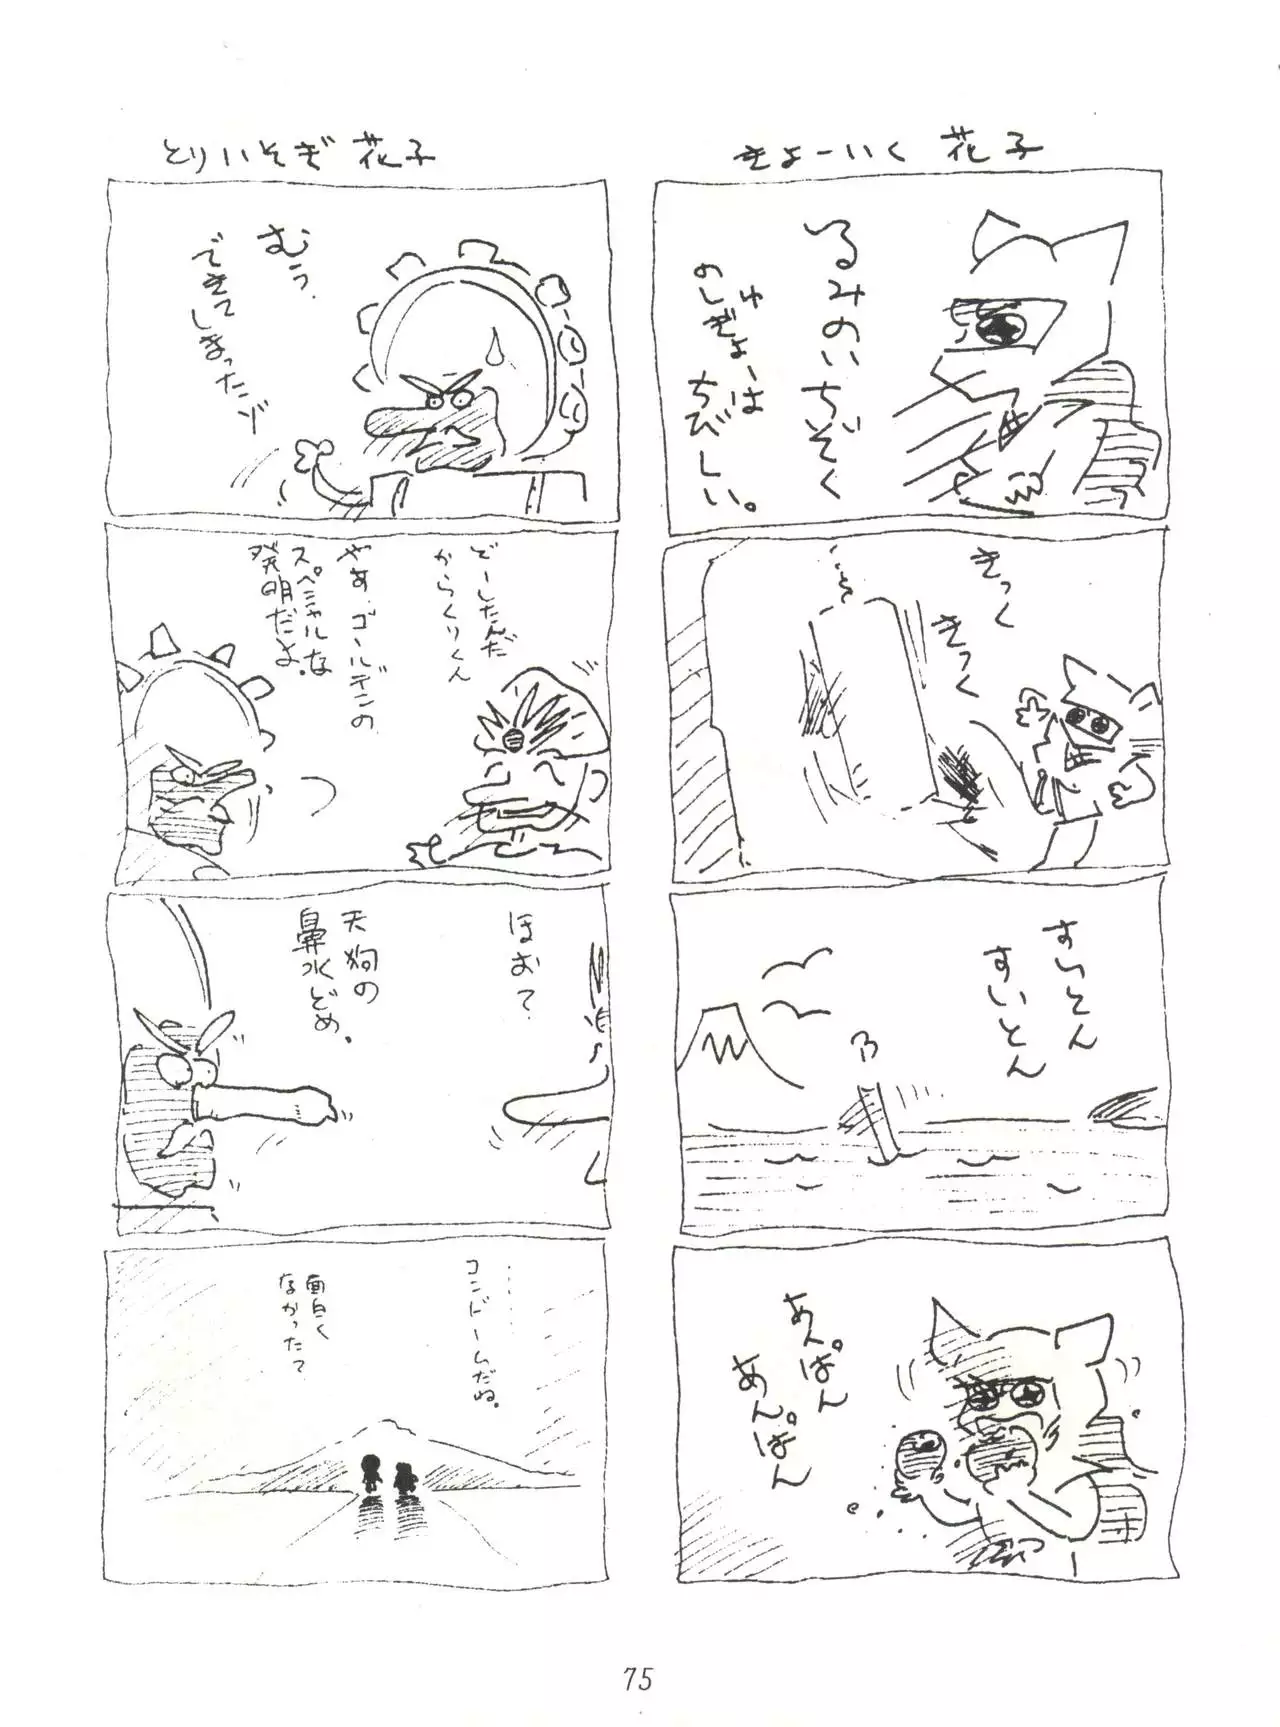 きょーいく 花子
るみのいちぞく
のしゅぎょーは
ちびしい。
きっく
きっく
すいとん
すいとん
あんぱん
あんぱん
とりいそぎ 花子
むう.
できて
しまったゾ
どーしたんだ
からくりくん
やあ.ゴールデンの
スペシャルな
発明だよ.
ほおて
天狗の
鼻水どめ.
……
コンドームだね.
面白く
なかったて
75